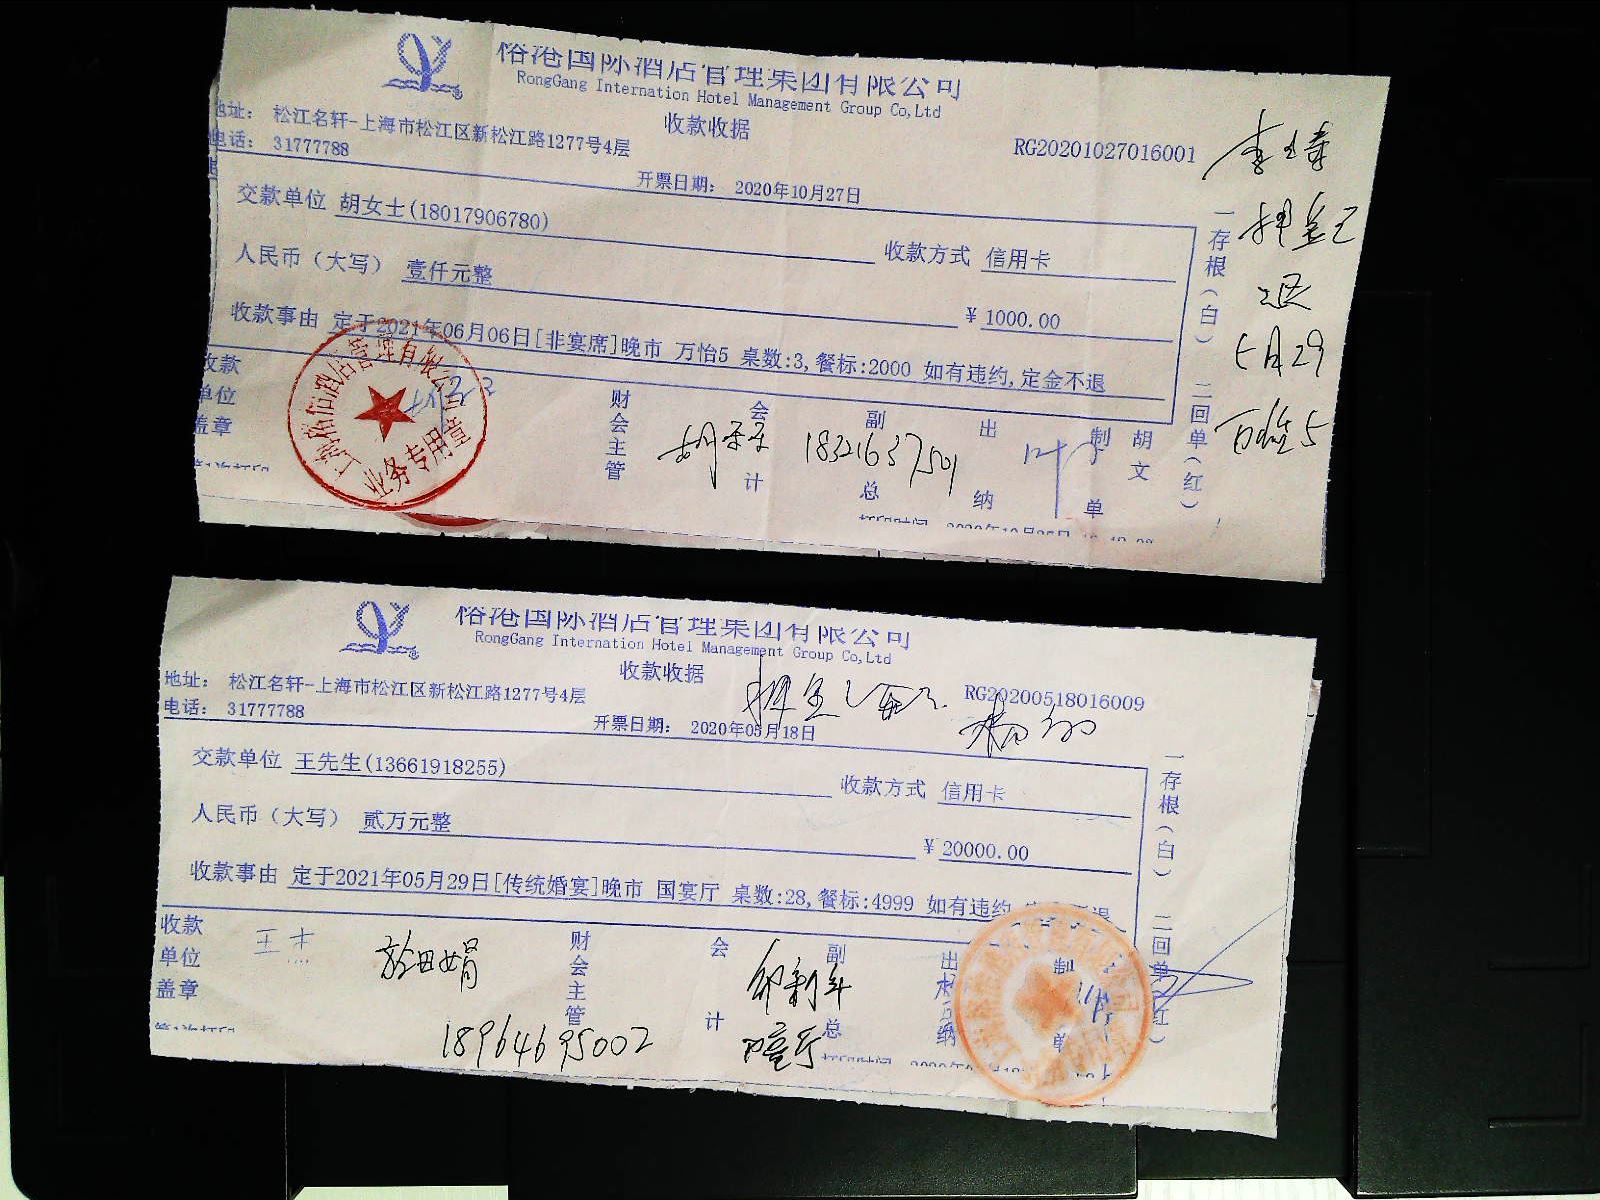 裕港国际酒店管理集团有限公司
RongGang Internation Hotel Management Group Co,Ltd
收款收据
地址： 松江名轩-上海市松江区新松江路1277号4层
电话： 31777788
RG20201027016001
开票日期： 2020年10月27日
交款单位 胡女士(18017906780)
收款方式 信用卡
人民币（大写） 壹仟元整
￥1000.00
收款事由 定于2021年06月06日[非宴席]晚市 万怡5 桌数:3,餐标:2000 如有违约,定金不退
收款单位盖章
财会主管
会计
副总
出纳
制单
胡文
18321637501
一存根（白） 二回单（红）
押金已
退
5月29
万怡5
业务专用章
裕港国际酒店管理集团有限公司
RongGang Internation Hotel Management Group Co,Ltd
收款收据
地址： 松江名轩-上海市松江区新松江路1277号4层
电话： 31777788
RG20200518016009
开票日期： 2020年05月18日
交款单位 王先生(13661918255)
收款方式 信用卡
人民币（大写） 贰万元整
￥20000.00
收款事由 定于2021年05月29日[传统婚宴]晚市 国宴厅 桌数:28,餐标:4999 如有违约
收款单位盖章
财会主管
会计
副总
出纳
制单
18964695002
一存根（白） 二回单（红）